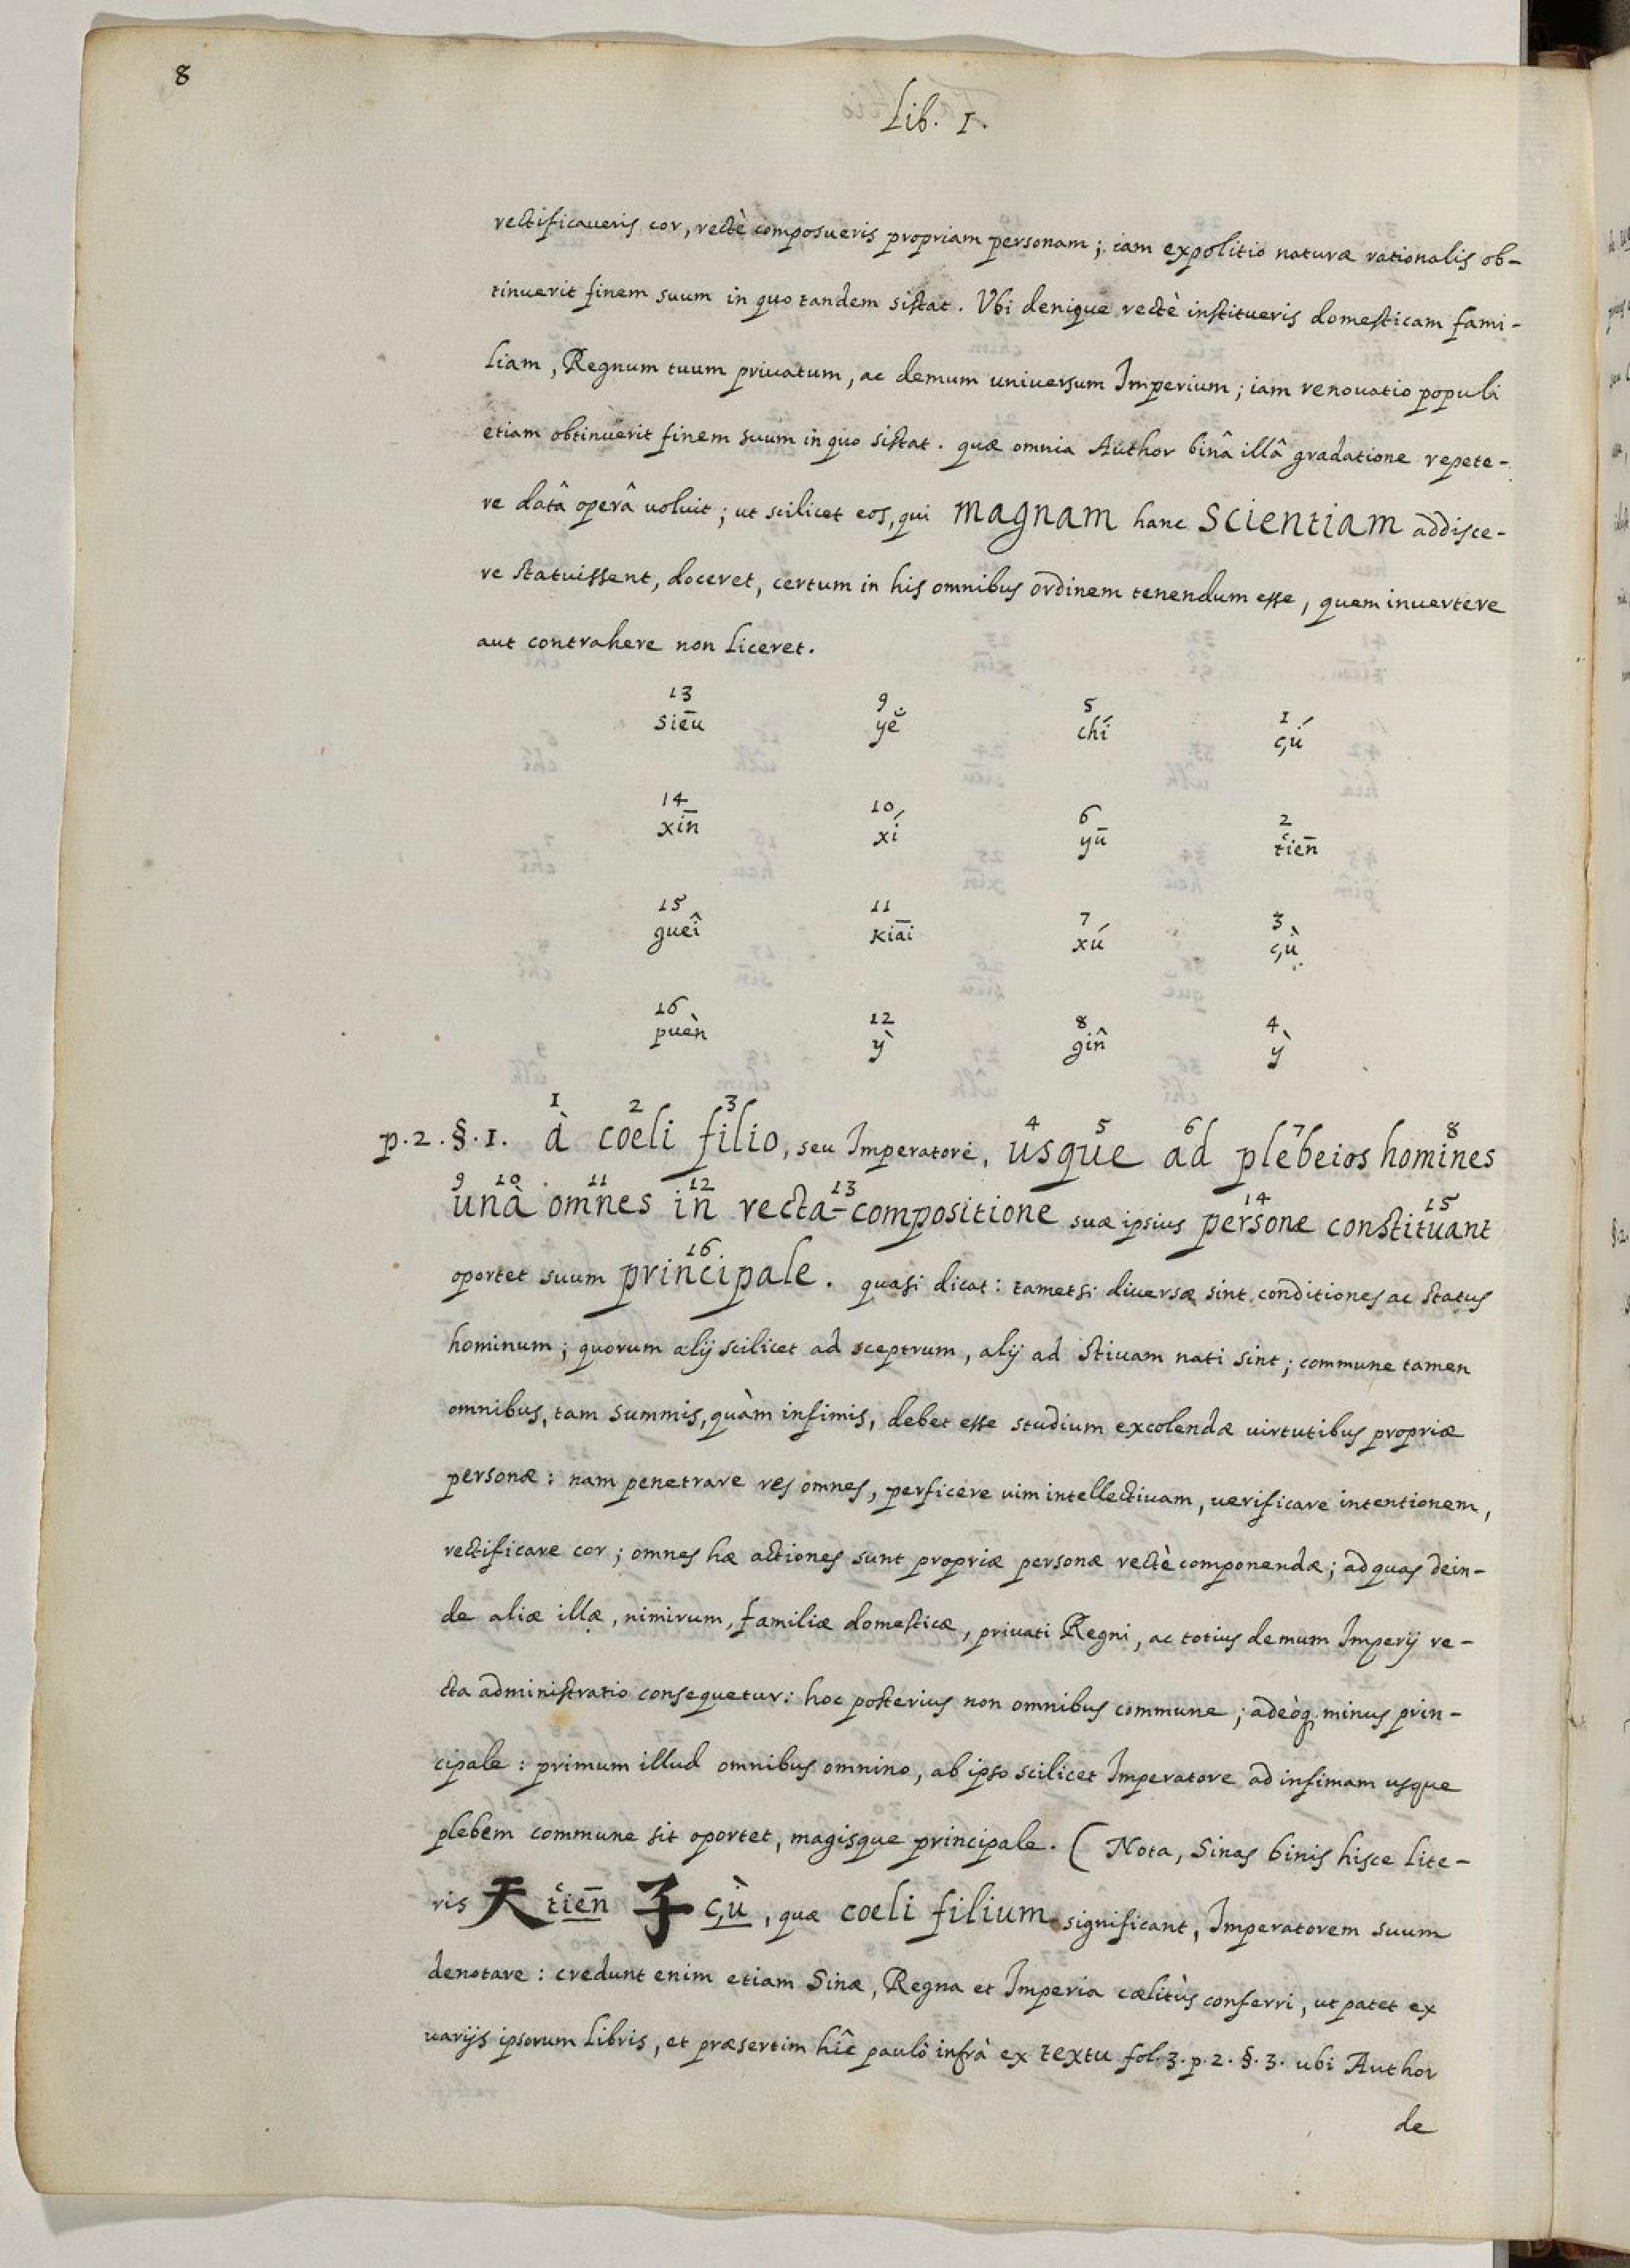 8
Lib. I.
rectificaueris cor, rectè composueris propriam personam; iam expolitio naturæ rationalis ob-
tinuerit finem suum in quo tandem sistat. Vbi denique rectè institueris domesticam fami-
liam, Regnum tuum priuatum, ac demum uniuersum Imperium; iam renouatio populi
etiam obtinuerit finem suum in quo sistat. quæ omnia Author binâ illâ gradatione repete-
re datâ operâ uoluit; ut scilicet eos, qui magnam hanc scientiam addisce-
re statuissent, doceret, certum in his omnibus ordinem tenendum esse, quem inuertere
aut contrahere non liceret.
13 9 5 1
siēu yĕ chí çú
14 10 6 2
xīn xí yū tiēn
15 11 7 3
gueî kiāi xú çù
16 12 8 4
puèn ỳ gîn ỳ
1 2 3 4 5 6 7 8
p. 2. §. 1. à coeli filio, seu Imperatore, usque ad plebeios homines
9 10 11 12 13 14 15
unà omnes in recta-compositione suæ ipsius personæ constituant
16
oportet suum principale. quasi dicat: tametsi diuersæ sint conditiones ac status
hominum; quorum alij scilicet ad sceptrum, alij ad stiuam nati sint; commune tamen
omnibus, tam summis, quàm infimis, debet esse studium excolendæ uirtutibus propriæ
personæ: nam penetrare res omnes, perficere uim intellectiuam, uerificare intentionem,
rectificare cor; omnes hæ actiones sunt propriæ personæ rectè componendæ; ad quas dein-
de aliæ illæ, nimirum, familiæ domesticæ, priuati Regni, ac totius demum Imperij re-
cta administratio consequetur: hoc posterius non omnibus commune; adeòq, minus prin-
cipale: primum illud omnibus omnino, ab ipso scilicet Imperatore ad infimam usque
plebem commune sit oportet, magisque principale. (Nota, Sinas binis hisce lite-
ris 天 tiēn 子 çù, quæ coeli filium significant, Imperatorem suum
denotare: credunt enim etiam Sinæ, Regna et Imperia cælitùs conferri, ut patet ex
uarijs ipsorum libris, et præsertim hîc paulò infrà ex textu fol. 3. p. 2. §. 3. ubi Author
de